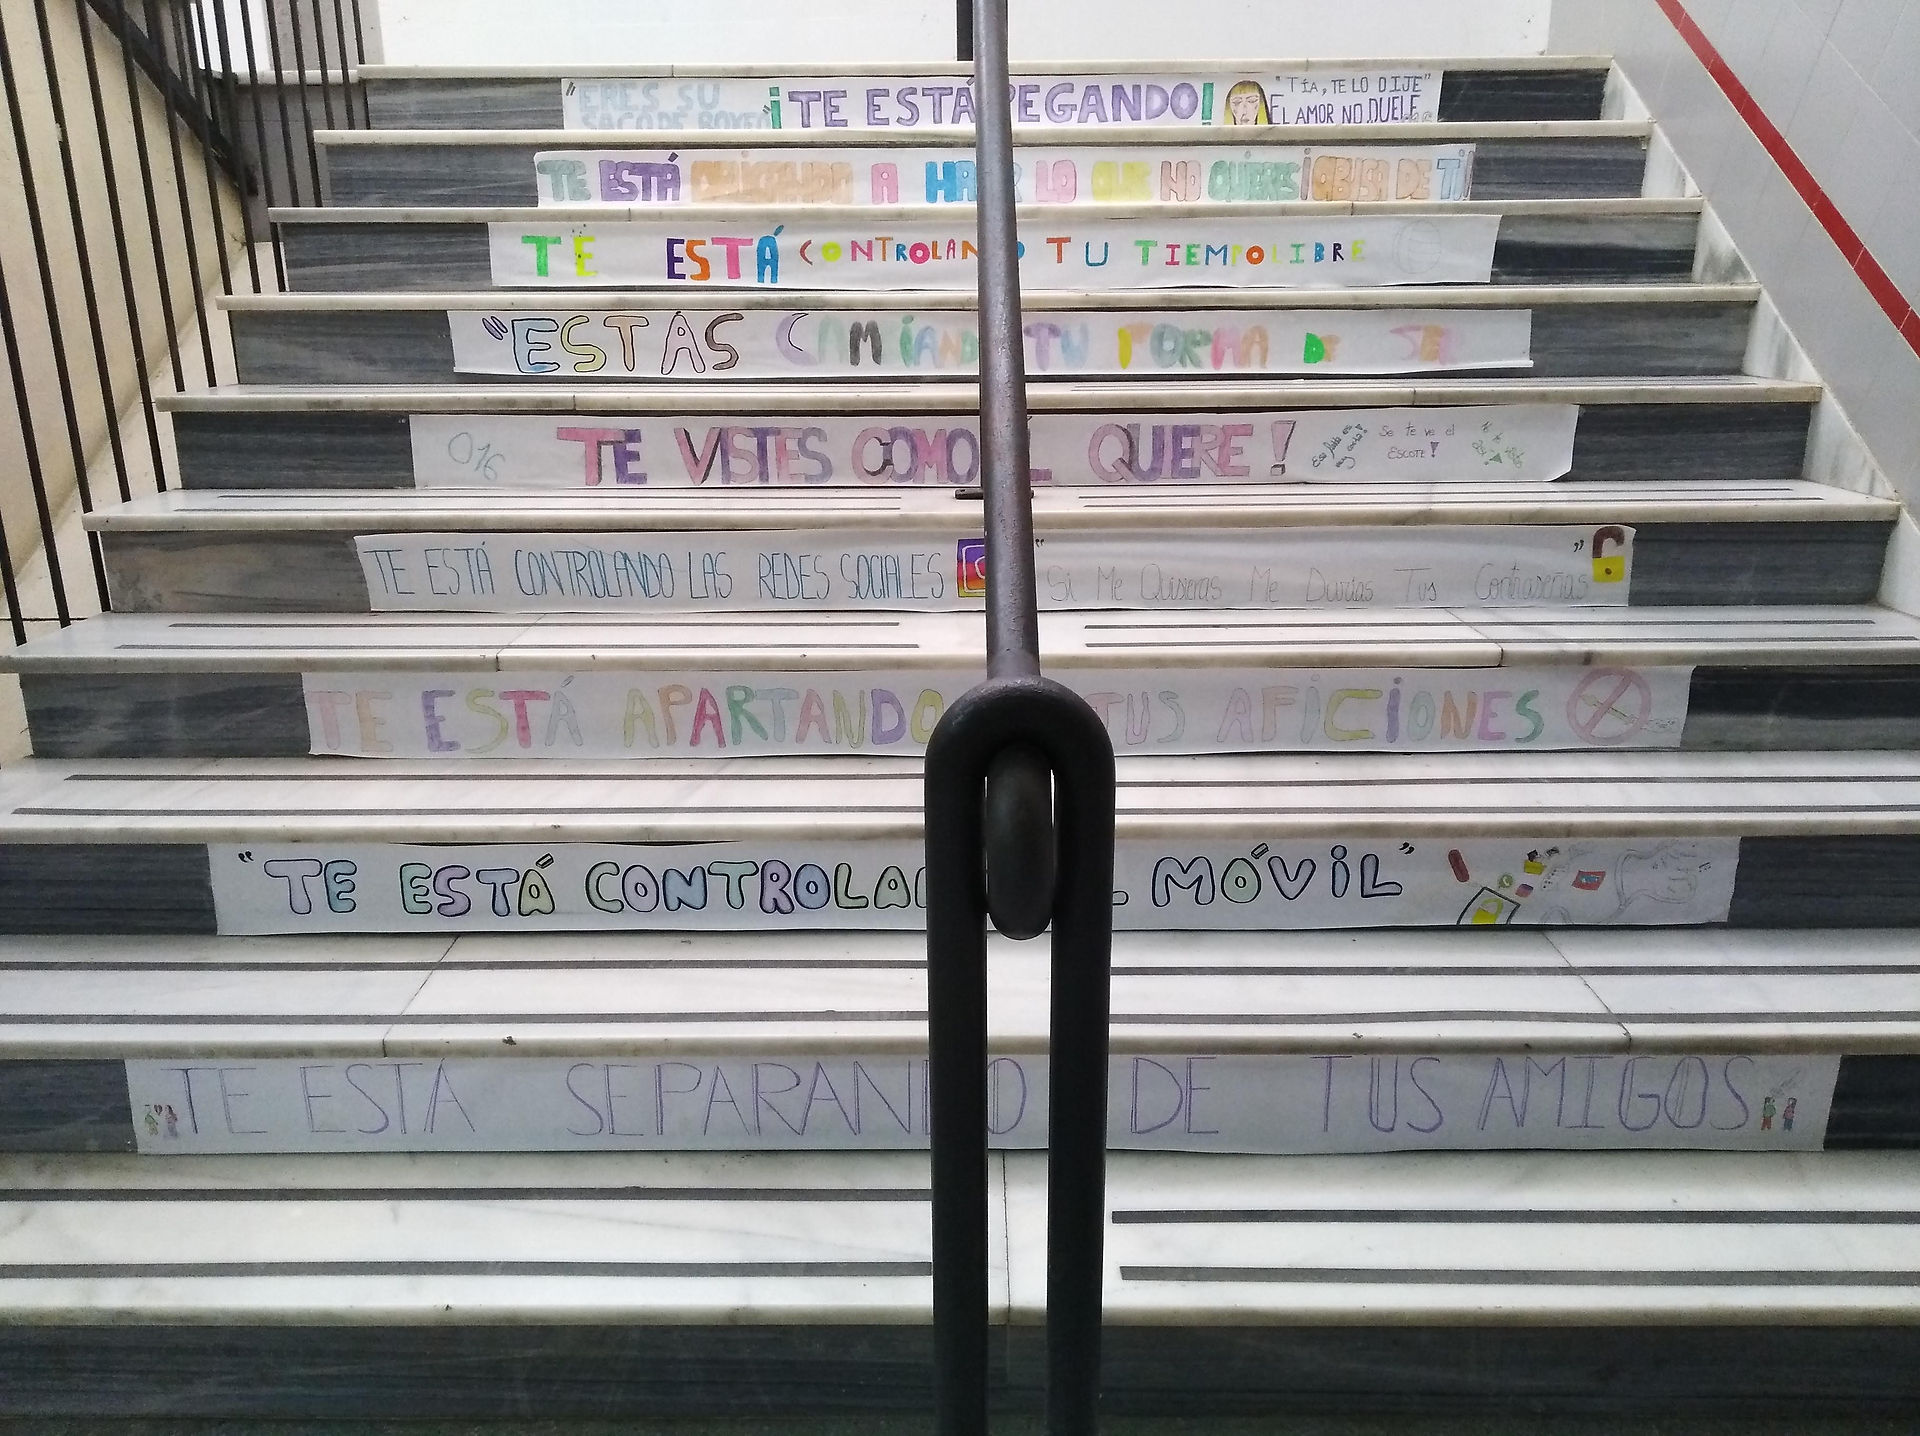 "ERES SU
SACO DE BOXEO"
¡TE ESTÁ PEGANDO!
"TÍA, TE LO DIJE"
EL AMOR NO DUELE
TE ESTÁ OBLIGANDO A HACER LO QUE NO QUIERES ¡ABUSA DE TI!
TE ESTÁ CONTROLANDO TU TIEMPO LIBRE
"ESTÁS CAMBIANDO TU FORMA DE SER
016 TE VISTES COMO ÉL QUIERE!
Se te ve el
ESCOTE!
TE ESTÁ CONTROLANDO LAS REDES SOCIALES " Si Me Quisieras Me Durias Tus Contraseñas "
TE ESTÁ APARTANDO TUS AFICIONES
"TE ESTÁ CONTROLA L MÓVIL"
TE ESTÁ SEPARANDO DE TUS AMIGOS